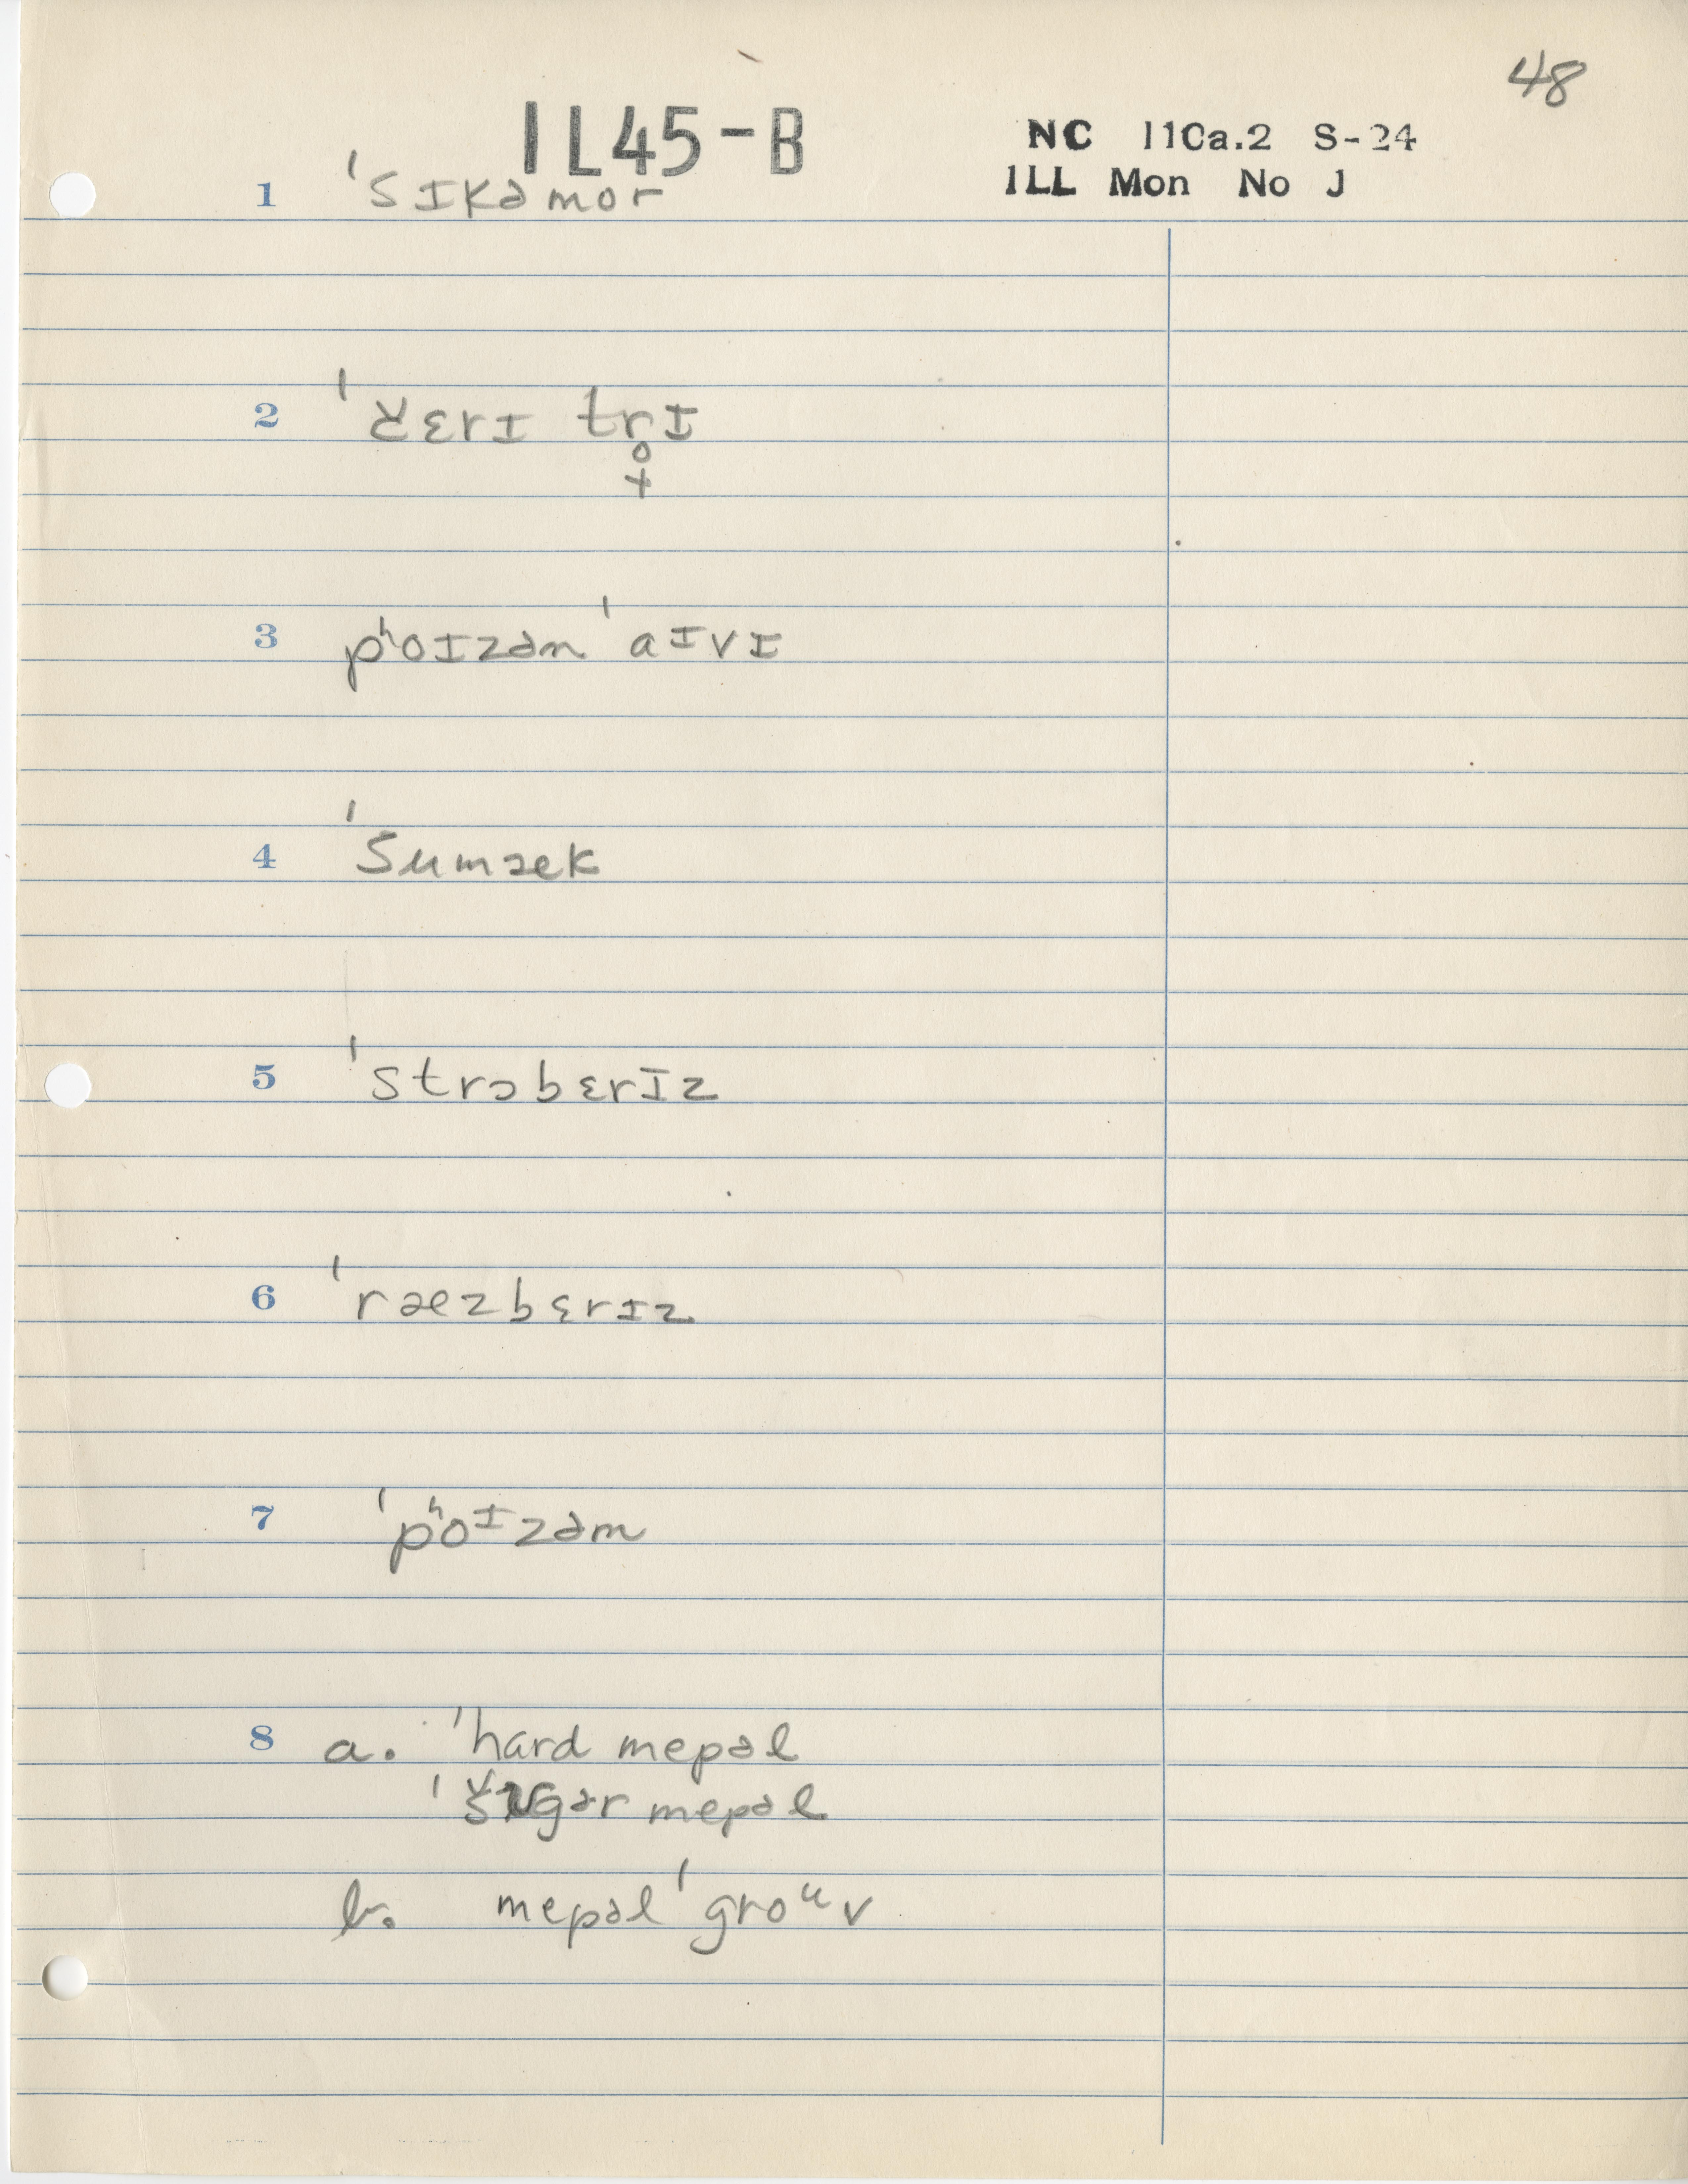 48
IL45-B
NC 11Ca.2 S-24
ILL Mon No J
1 ˈsɪkəmor
2 ˈčɛrɪ tr̥̟ɪ
3 pʰoɪzən ˈaɪvɪ
4 ˈšumæk
5 ˈstrɔbɛrɪz
6 ˈræzbɛrɪz
7 ˈpʰoᶦzəm
8 a. ˈhard mepəl
ˈšʊgər mepəl
b. mepəl ˈgroᵘv